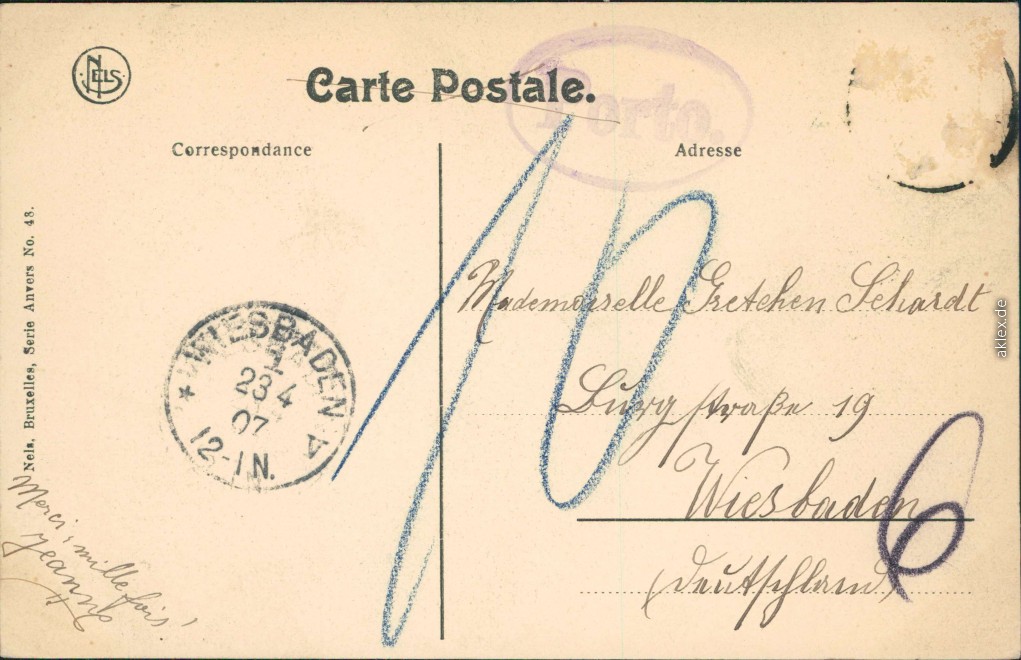 NELS
Carte Postale.
Porto.
Correspondance
Adresse
Nels, Bruxelles, Serie Anvers No. 43.
10
Mademoiselle Gretchen Schardt
Burgstraße 19
Wiesbaden
(Deutschland)
6
WIESBADEN
1
23 4
07
12-1N.
Merci, mille fois!
Jeanne
aklex.de